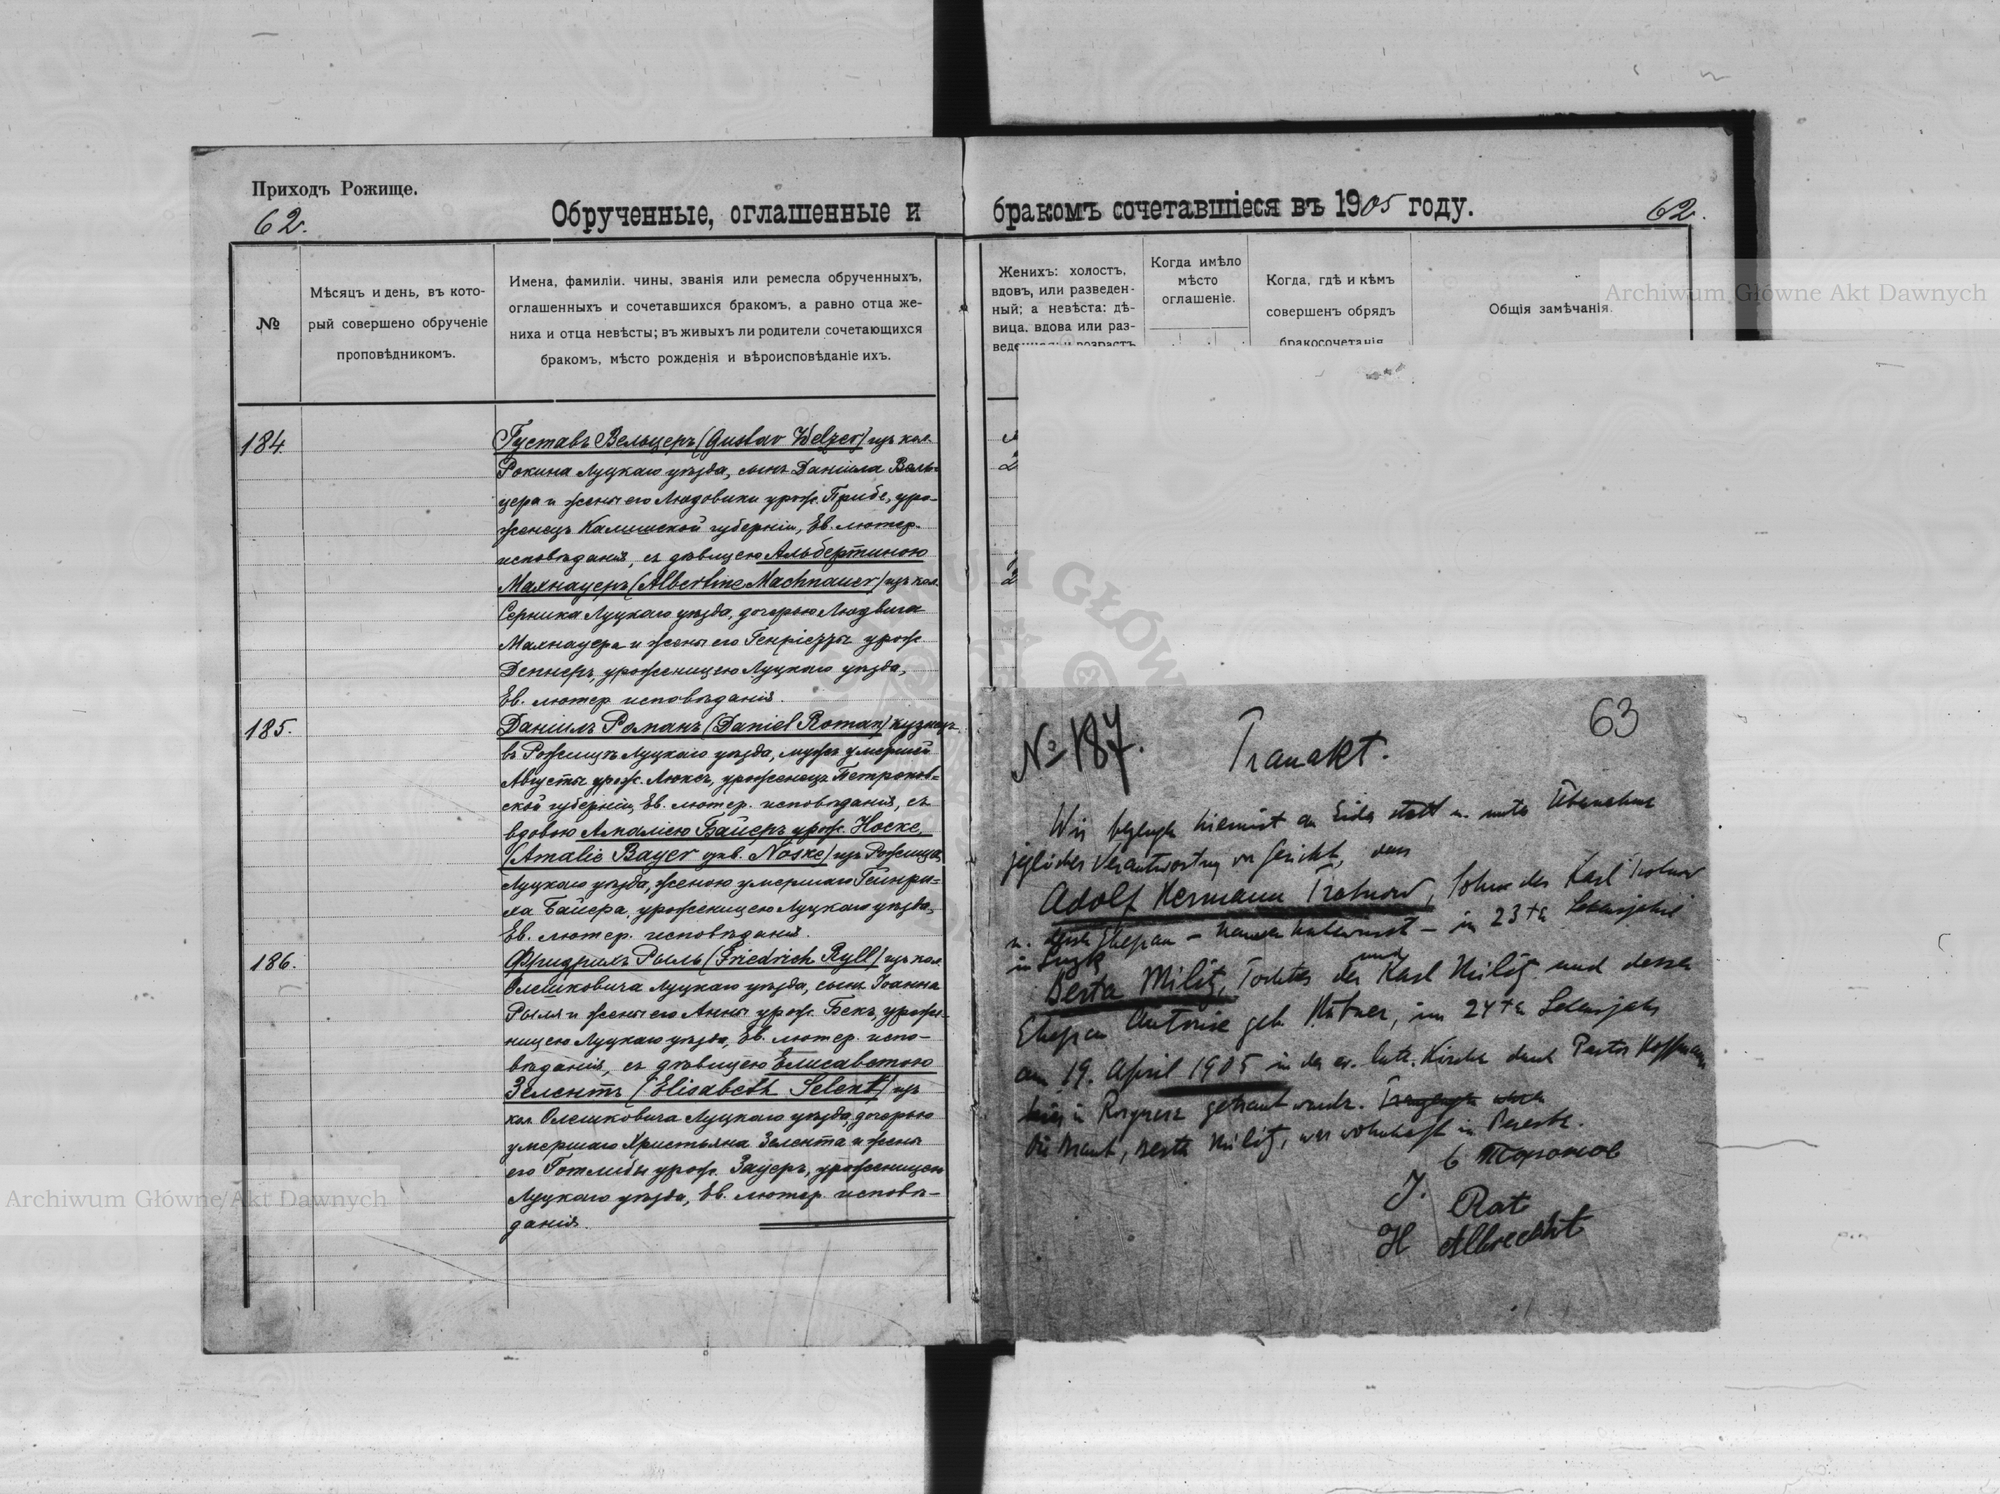 Приходъ Рожище.
62.
Обрученные, оглашенные и
бракомъ сочетавшіеся въ 1905 году.
62.
№
Мѣсяцъ и день, въ кото-
рый совершено обрученіе
проповѣдникомъ.
Имена, фамиліи. чины, званія или ремесла обрученныхъ,
оглашенныхъ и сочетавшихся бракомъ, а равно отца же-
ниха и отца невѣсты; въ живыхъ ли родители сочетающихся
бракомъ, мѣсто рожденія и вѣроисповѣданіе ихъ.
Женихъ: холостъ,
вдовъ, или разведен-
ный; а невѣста: дѣ-
вица, вдова или раз-
Когда имѣло
мѣсто
оглашеніе.
Когда, гдѣ и кѣмъ
совершенъ обрядъ
бракосочетанія
Общія замѣчанія.
Archiwum Główne Akt Dawnych
184.
Густавъ Вельцеръ (Gustav Welzer) изъ кол.
Рокина Луцкаго уѣзда, сынъ Даніила Вель-
цера и жены его Людовики урож. Прибе, уро-
женецъ Калишской губерніи, Ев. лютер.
исповѣданія, съ дѣвицею Альбертиною
Махнауеръ (Albertine Machnauer) изъ кол.
Серника Луцкаго уѣзда, дочерью Людвига
Махнауера и жены его Генріетты урож.
Деннеръ, уроженицею Луцкаго уѣзда,
Ев. лютер. исповѣданія.
185.
Даніилъ Романъ (Daniel Roman) кузнецъ
въ Рожищѣ Луцкаго уѣзда, мужъ умершей
Августы урож. Люксъ, уроженецъ Петроков-
ской губерніи, Ев. лютер. исповѣданія, съ
вдовою Амаліею Байеръ урож. Носке,
(Amalie Bayer geb. Noske) изъ Рожища,
Луцкаго уѣзда, женою умершаго Гейнри-
ха Байера, уроженицею Луцкаго уѣзда,
Ев. лютер. исповѣданія.
186.
Фридрихъ Рыль (Friedrich Ryll) изъ кол.
Олешковича Луцкаго уѣзда, сынъ Іоанна
Рыля и жены его Анны урож. Бекъ, уроже-
ницею Луцкаго уѣзда, Ев. лютер. испо-
вѣданія, съ дѣвицею Елисаветою
Зелентъ (Elisabeth Selent) изъ
кол. Олешковича Луцкаго уѣзда, дочерью
умершаго Христьяна Зелента и жены
его Готлибы урож. Зауеръ, уроженицею
Луцкаго уѣзда, Ев. лютер. исповѣ-
данія.
№ 187.
63
Trauakt.
Wir bezeugen hiermit an Eides statt u. unter Übernahme
jeglicher Verantwortung vor Gericht, dass
Adolf Hermann Tratnow, Sohn des Karl Tratnow
u. dessen Ehefrau – Name unbewusst – im 23ten Lebensjahre
in Luzk
und
Berta Militz, Tochter des Karl Militz und dessen
Ehefrau Antonie geb. im 24ten Lebensjahr
am 19. April 1905 in der ev. luth. Kirche durch Pastor Hoffmann
hier in getraut wurde.
Die Braut, Berta Militz, war wohnhaft in
J. Rat
H Albrecht
Archiwum Główne Akt Dawnych